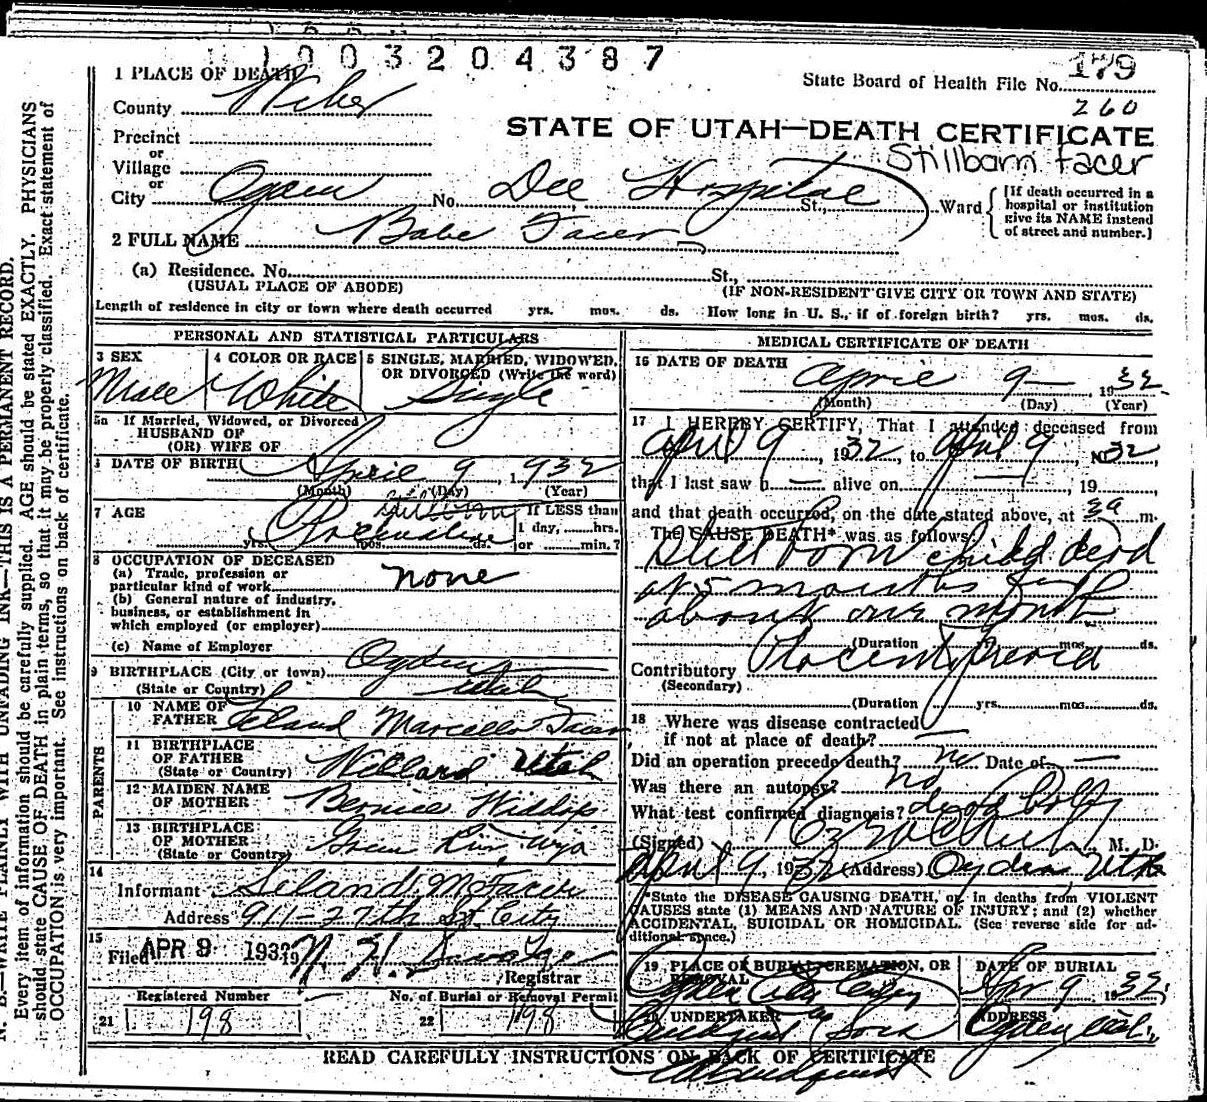 1003204387
1 PLACE OF DEATH
State Board of Health File No. 179
260
County Weber
Precinct
STATE OF UTAH—DEATH CERTIFICATE
or
Village
Stillborn Facer
or
City Ogden No. Dee Hospital St., Ward
[If death occurred in a
hospital or institution
give its NAME instead
of street and number.]
2 FULL NAME Babe Facer
(a) Residence. No. St.,
(USUAL PLACE OF ABODE) (IF NON-RESIDENT GIVE CITY OR TOWN AND STATE)
Length of residence in city or town where death occurred yrs. mos. ds. How long in U. S., if of foreign birth? yrs. mos. ds.
PERSONAL AND STATISTICAL PARTICULARS
3 SEX 4 COLOR OR RACE 5 SINGLE, MARRIED, WIDOWED,
OR DIVORCED (Write the word)
Male White Single
5a If Married, Widowed, or Divorced
HUSBAND OF
(OR) WIFE OF
6 DATE OF BIRTH April 9 1932
(Month) (Day) (Year)
7 AGE Stillborn If LESS than
1 day, hrs.
Premature
yrs. mos. ds. or min.?
8 OCCUPATION OF DECEASED
(a) Trade, profession or
particular kind of work none
(b) General nature of industry,
business, or establishment in
which employed (or employer)
(c) Name of Employer
9 BIRTHPLACE (City or town) Ogden
(State or Country) Utah
PARENTS
10 NAME OF
FATHER Leland Marcello Facer
11 BIRTHPLACE
OF FATHER
(State or Country) Willard Utah
12 MAIDEN NAME
OF MOTHER Bernice Widdip
13 BIRTHPLACE
OF MOTHER
(State or Country) Green Riv, Wyo
14
Informant Leland M Facer
Address 911-27th St City
15
Filed APR 9 1932 19
Registrar
Registered Number No. of Burial or Removal Permit
21 198 22 198
MEDICAL CERTIFICATE OF DEATH
16 DATE OF DEATH
April 9 1932
(Month) (Day) (Year)
17 I HEREBY CERTIFY, That I attended deceased from
April 9, 1932, to April 9, 1932,
that I last saw h — alive on —, 19
and that death occurred, on the date stated above, at 3a m.
The CAUSE DEATH* was as follows:
Still born child dead
at 5 months
about one month
(Duration yrs. mos. ds.
Contributory Placenta previa
(Secondary)
(Duration yrs. mos. ds.
18 Where was disease contracted
if not at place of death? —
Did an operation precede death? no Date of —
Was there an autopsy? no
What test confirmed diagnosis? dead
(Signed) M. D.
April 9, 1932 (Address) Ogden, Utah
*State the DISEASE CAUSING DEATH, or, in deaths from VIOLENT
CAUSES state (1) MEANS AND NATURE OF INJURY; and (2) whether
ACCIDENTAL, SUICIDAL OR HOMICIDAL. (See reverse side for ad-
ditional space.)
19 PLACE OF BURIAL, CREMATION, OR
REMOVAL
DATE OF BURIAL
Ogden City Apr 9 1932
20 UNDERTAKER ADDRESS
Sons Ogden
READ CAREFULLY INSTRUCTIONS ON BACK OF CERTIFICATE
N. B.—WRITE PLAINLY WITH UNFADING INK—THIS IS A PERMANENT RECORD.
Every item of information should be carefully supplied. AGE should be stated EXACTLY. PHYSICIANS
should state CAUSE OF DEATH in plain terms, so that it may be properly classified. Exact statement of
OCCUPATION is very important. See instructions on back of certificate.